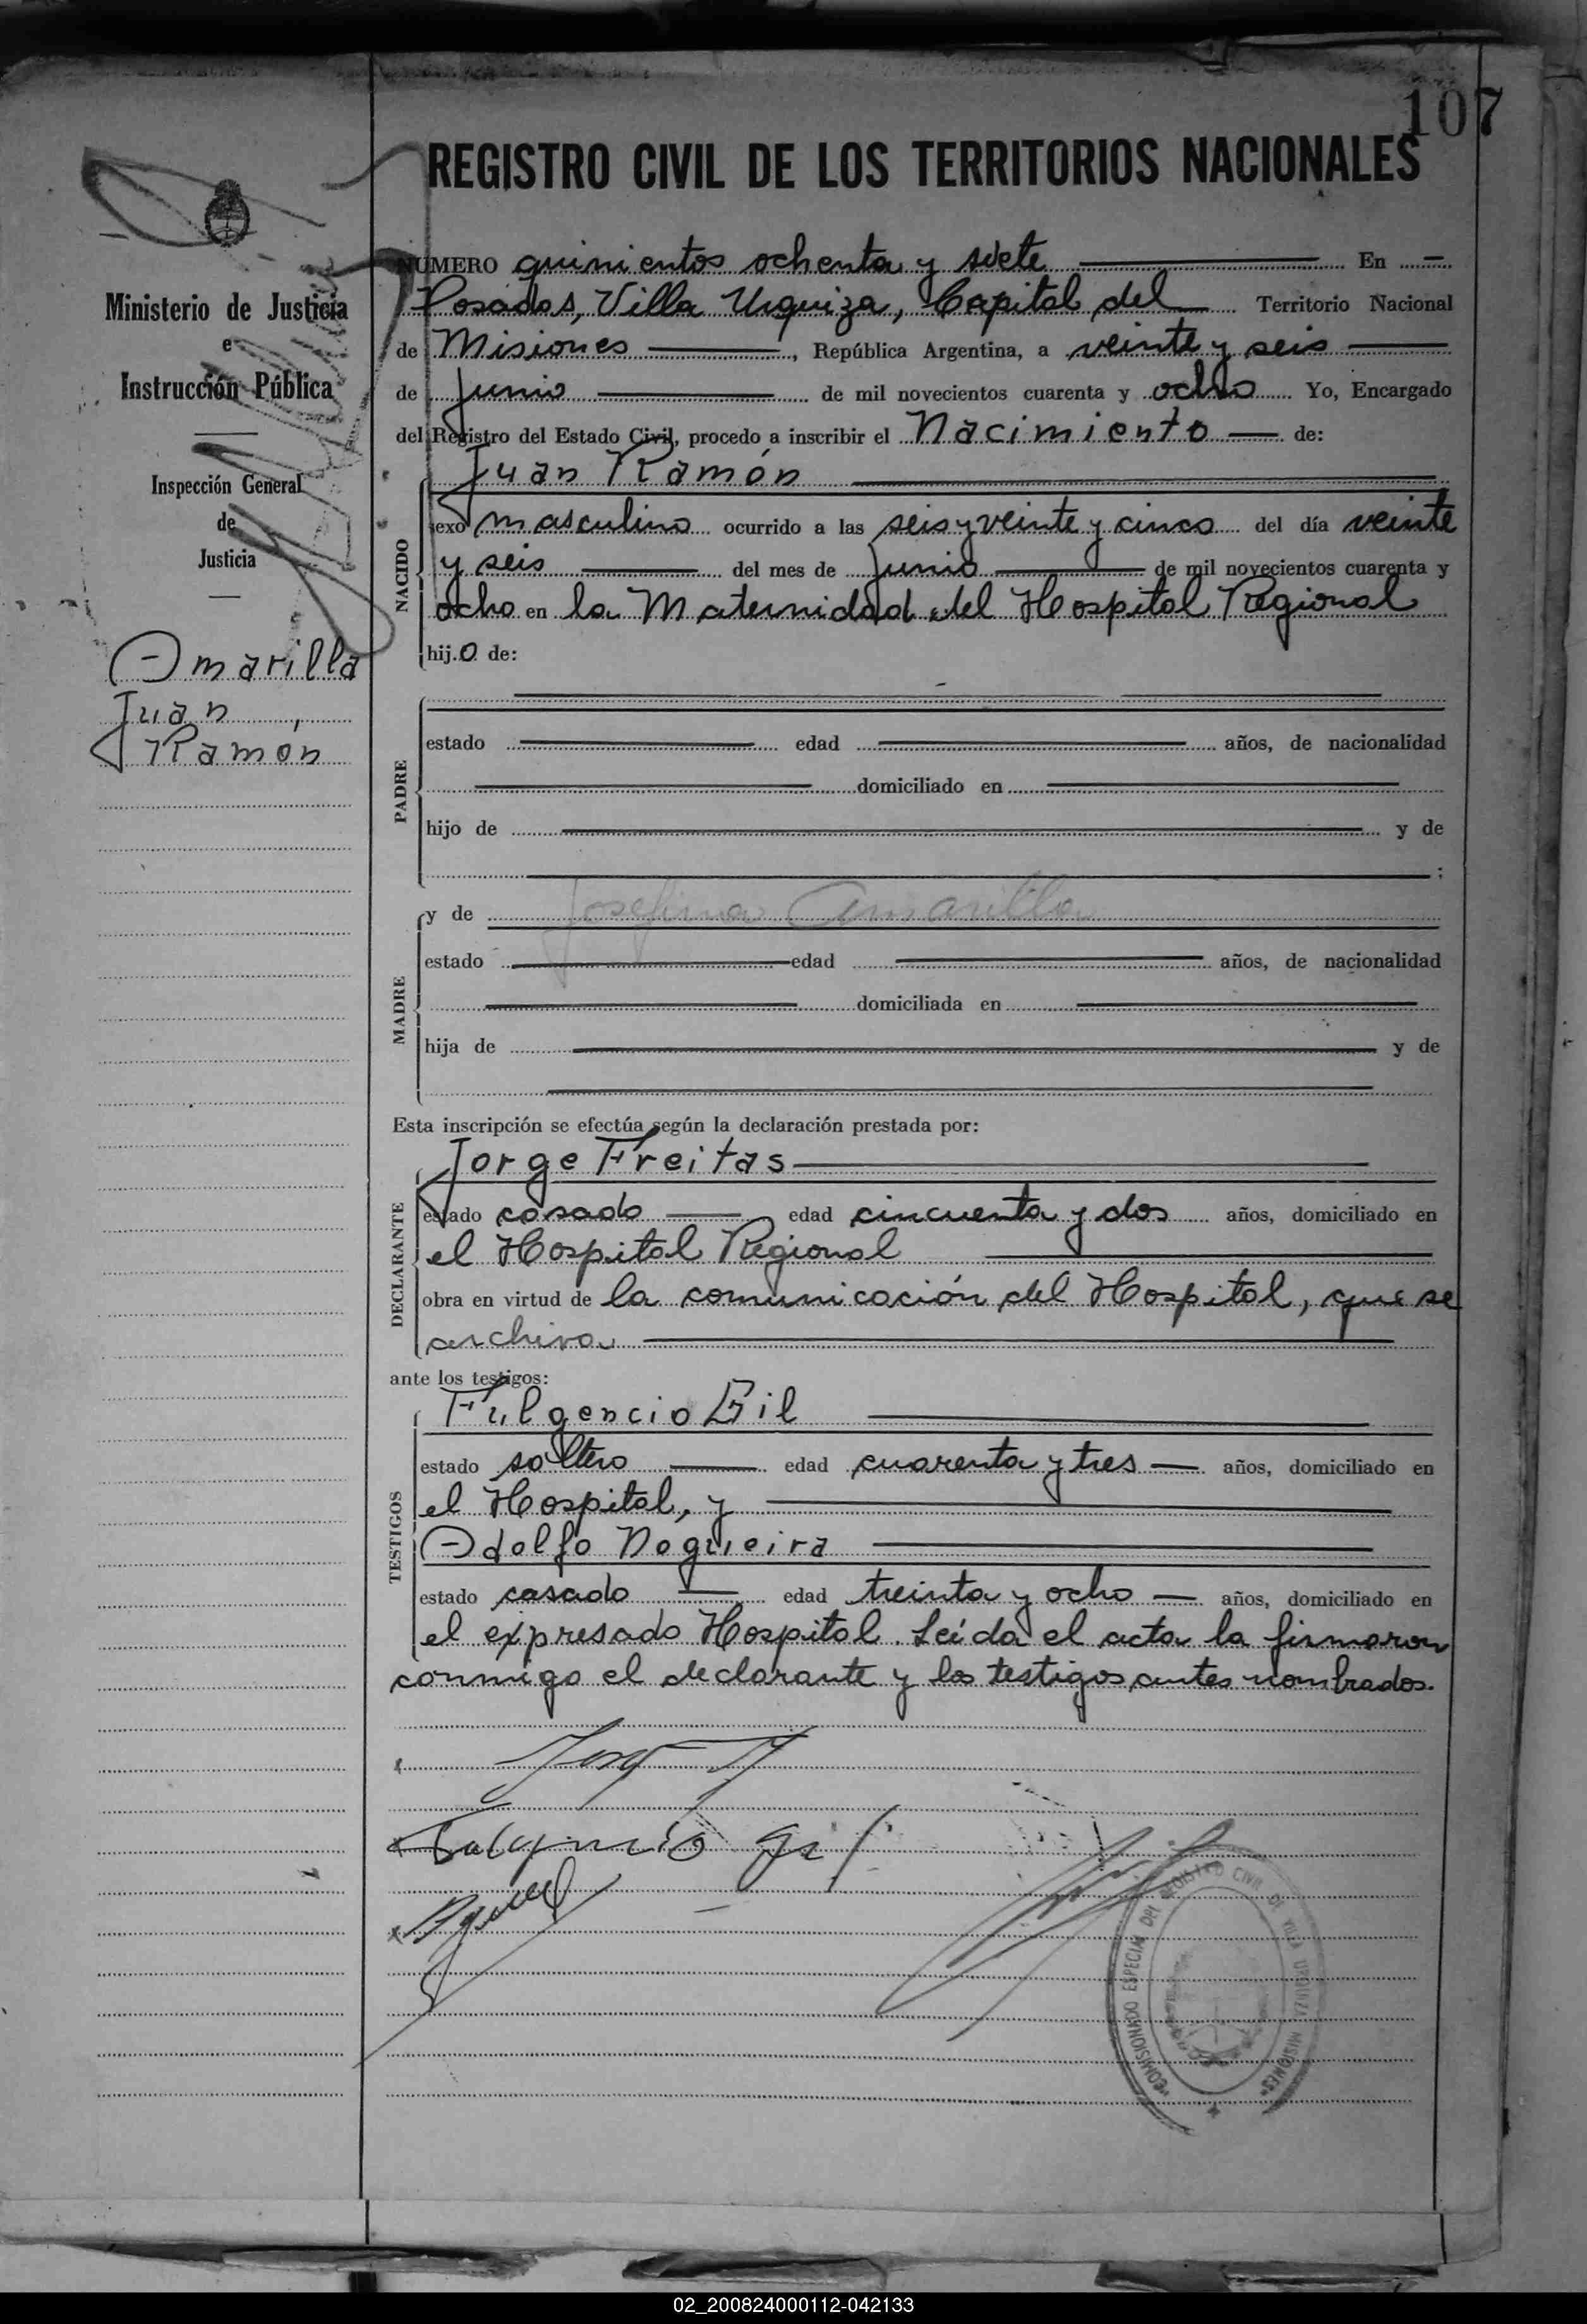 107
REGISTRO CIVIL DE LOS TERRITORIOS NACIONALES
Ministerio de Justicia
e
Instrucción Pública
Inspección General
de
Justicia
Amarilla
Juan
Ramón
NUMERO quinientos ochenta y siete En
Posadas, Villa Urquiza, Capital del Territorio Nacional
de Misiones, República Argentina, a veinte y seis
de Junio de mil novecientos cuarenta y ocho Yo, Encargado
del Registro del Estado Civil, procedo a inscribir el Nacimiento de:
Juan Ramón
NACIDO
sexo masculino ocurrido a las seis y veinte y cinco del día veinte
y seis del mes de Junio de mil novecientos cuarenta y
ocho en la Maternidad del Hospital Regional
hijo de:
PADRE
estado edad años, de nacionalidad
domiciliado en
hijo de y de
:
MADRE
y de Josefina Amarilla
estado edad años, de nacionalidad
domiciliada en
hija de y de
Esta inscripción se efectúa según la declaración prestada por:
DECLARANTE
Jorge Freitas
estado casado edad cincuenta y dos años, domiciliado en
el Hospital Regional
obra en virtud de la comunicación del Hospital, que se
archiva
ante los testigos:
TESTIGOS
Fulgencio Gil
estado soltero edad cuarenta y tres años, domiciliado en
el Hospital, y
Adolfo Nogueira
estado casado edad treinta y ocho años, domiciliado en
el expresado Hospital. Leída el acta la firmaron
conmigo el declarante y los testigos antes nombrados.
Fulgencio Gil
COMISIONADO ESPECIAL DEL REGISTRO CIVIL DE VILLA URQUIZA MISIONES
02_200824000112-042133